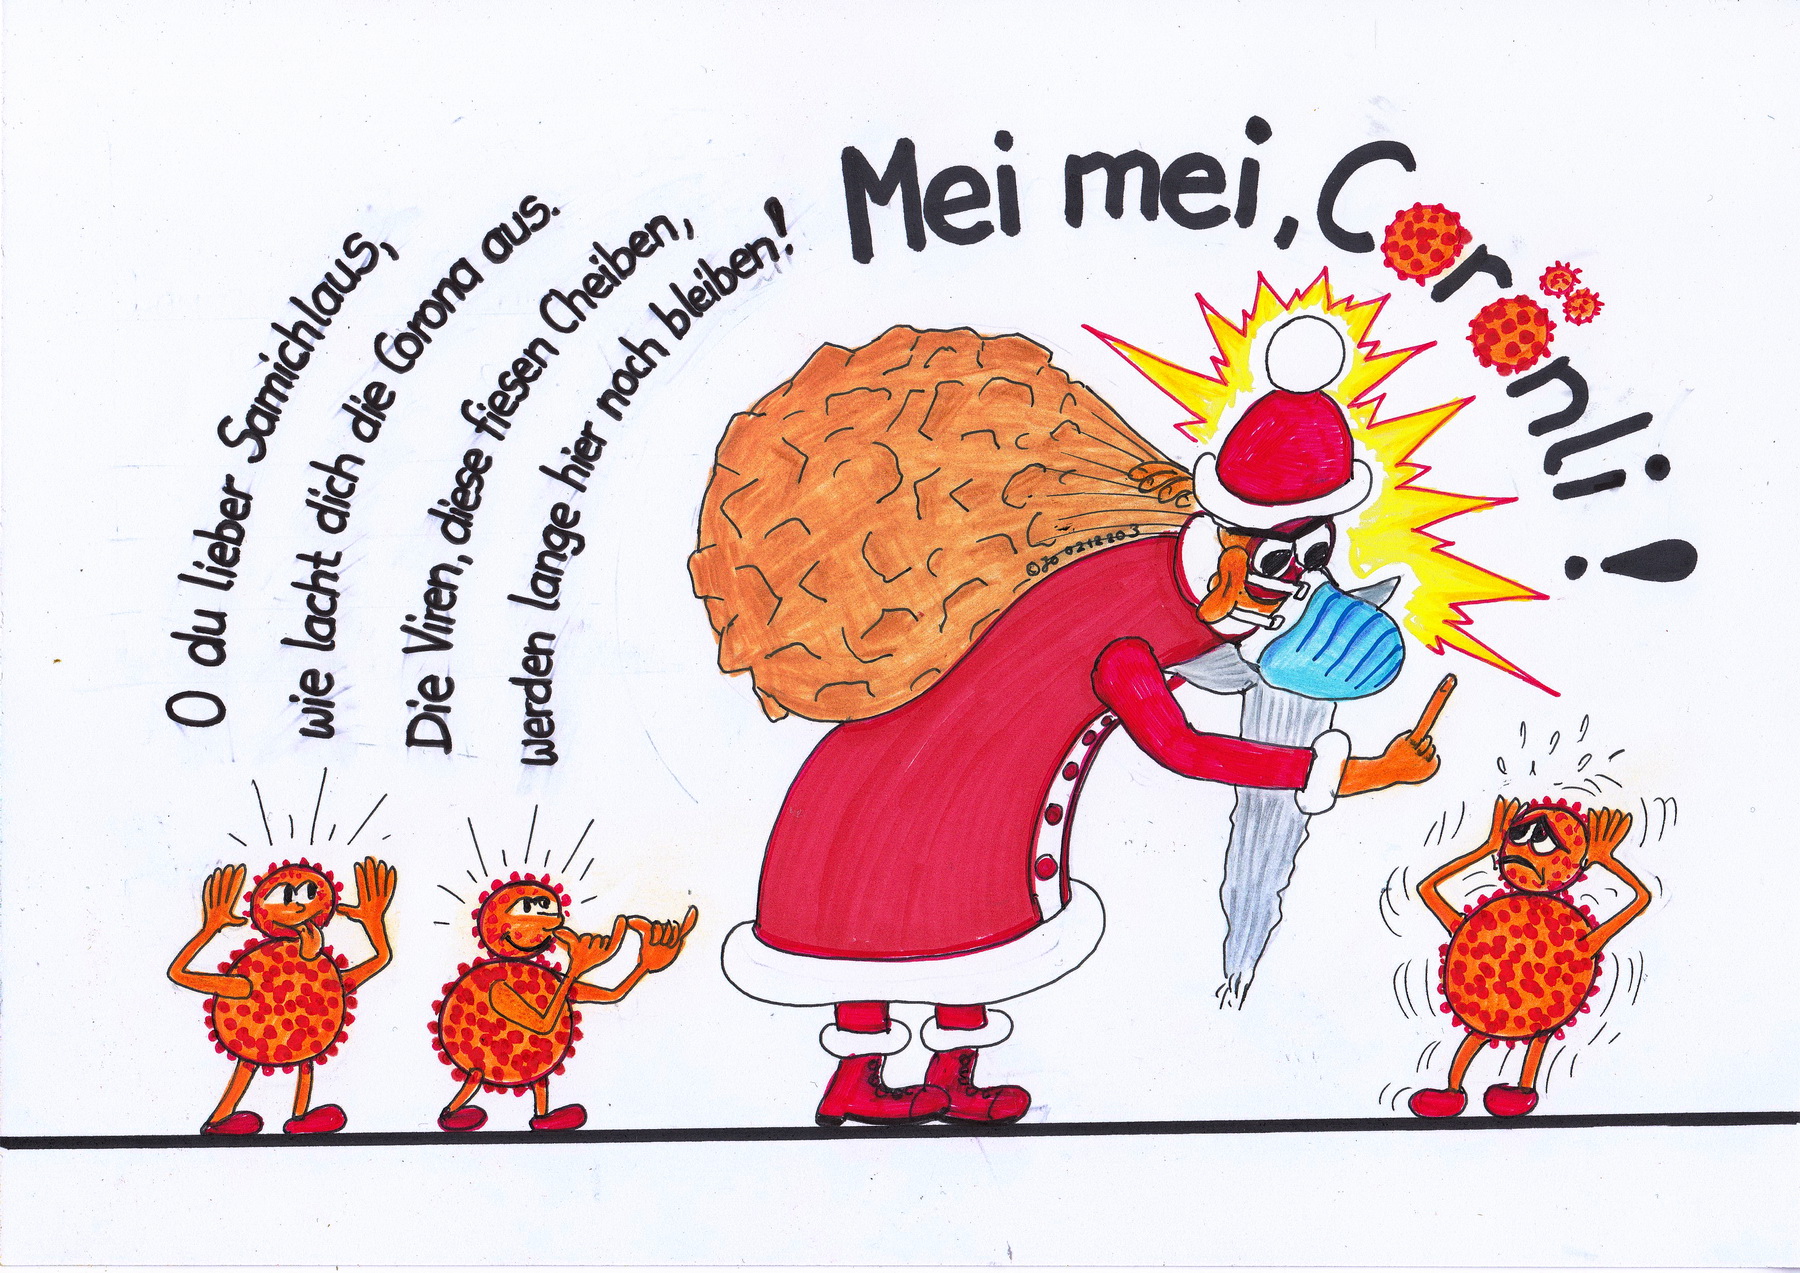 O du lieber Samichlaus,
wie lacht dich die Corona aus.
Die Viren, diese fiesen Cheiben,
werden lange hier noch bleiben!
Mei mei, Corönli!
©Jo 0212203